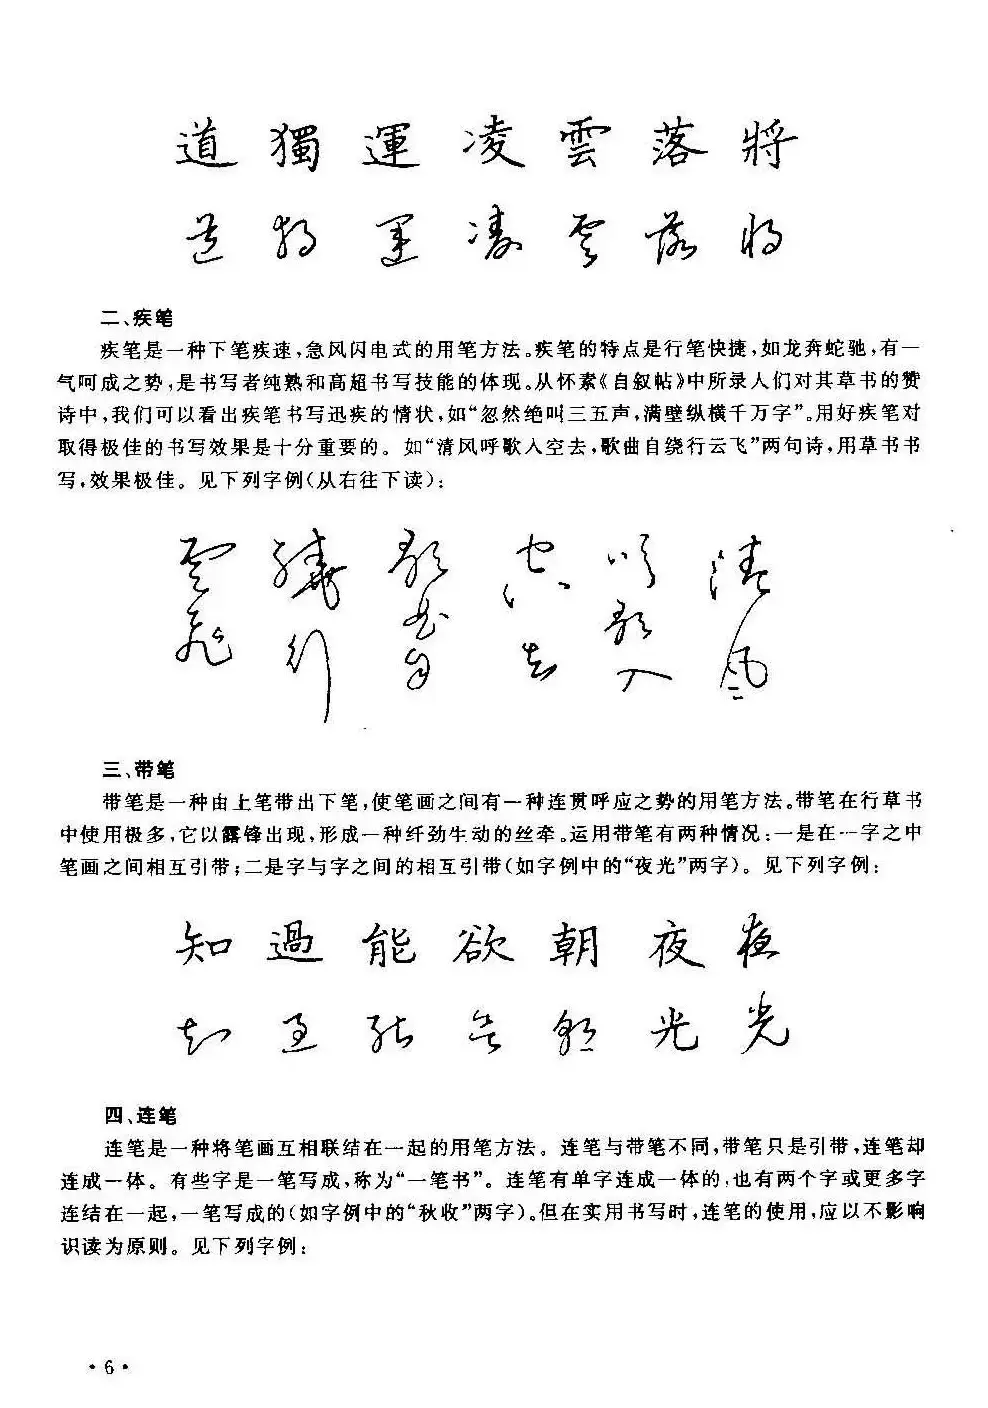 道 獨 運 凌 雲 落 將
道 獨 運 凌 雲 落 將
二、疾笔
疾笔是一种下笔疾速，急风闪电式的用笔方法。疾笔的特点是行笔快捷，如龙奔蛇驰，有一
气呵成之势，是书写者纯熟和高超书写技能的体现。从怀素《自叙帖》中所录人们对其草书的赞
诗中，我们可以看出疾笔书写迅疾的情状，如“忽然绝叫三五声，满壁纵横千万字”。用好疾笔对
取得极佳的书写效果是十分重要的。如“清风呼歌入空去，歌曲自绕行云飞”两句诗，用草书书
写，效果极佳。见下列字例（从右往下读）：
清風
呼歌入
空去
歌曲自
繞行
雲飛
三、带笔
带笔是一种由上笔带出下笔，使笔画之间有一种连贯呼应之势的用笔方法。带笔在行草书
中使用极多，它以露锋出现，形成一种纤劲生动的丝牵。运用带笔有两种情况：一是在一字之中
笔画之间相互引带；二是字与字之间的相互引带（如字例中的“夜光”两字）。见下列字例：
知 過 能 欲 朝 夜 夜
知 過 能 欲 朝 光 光
四、连笔
连笔是一种将笔画互相联结在一起的用笔方法。连笔与带笔不同，带笔只是引带，连笔却
连成一体。有些字是一笔写成，称为“一笔书”。连笔有单字连成一体的，也有两个字或更多字
连结在一起，一笔写成的（如字例中的“秋收”两字）。但在实用书写时，连笔的使用，应以不影响
识读为原则。见下列字例：
·6·